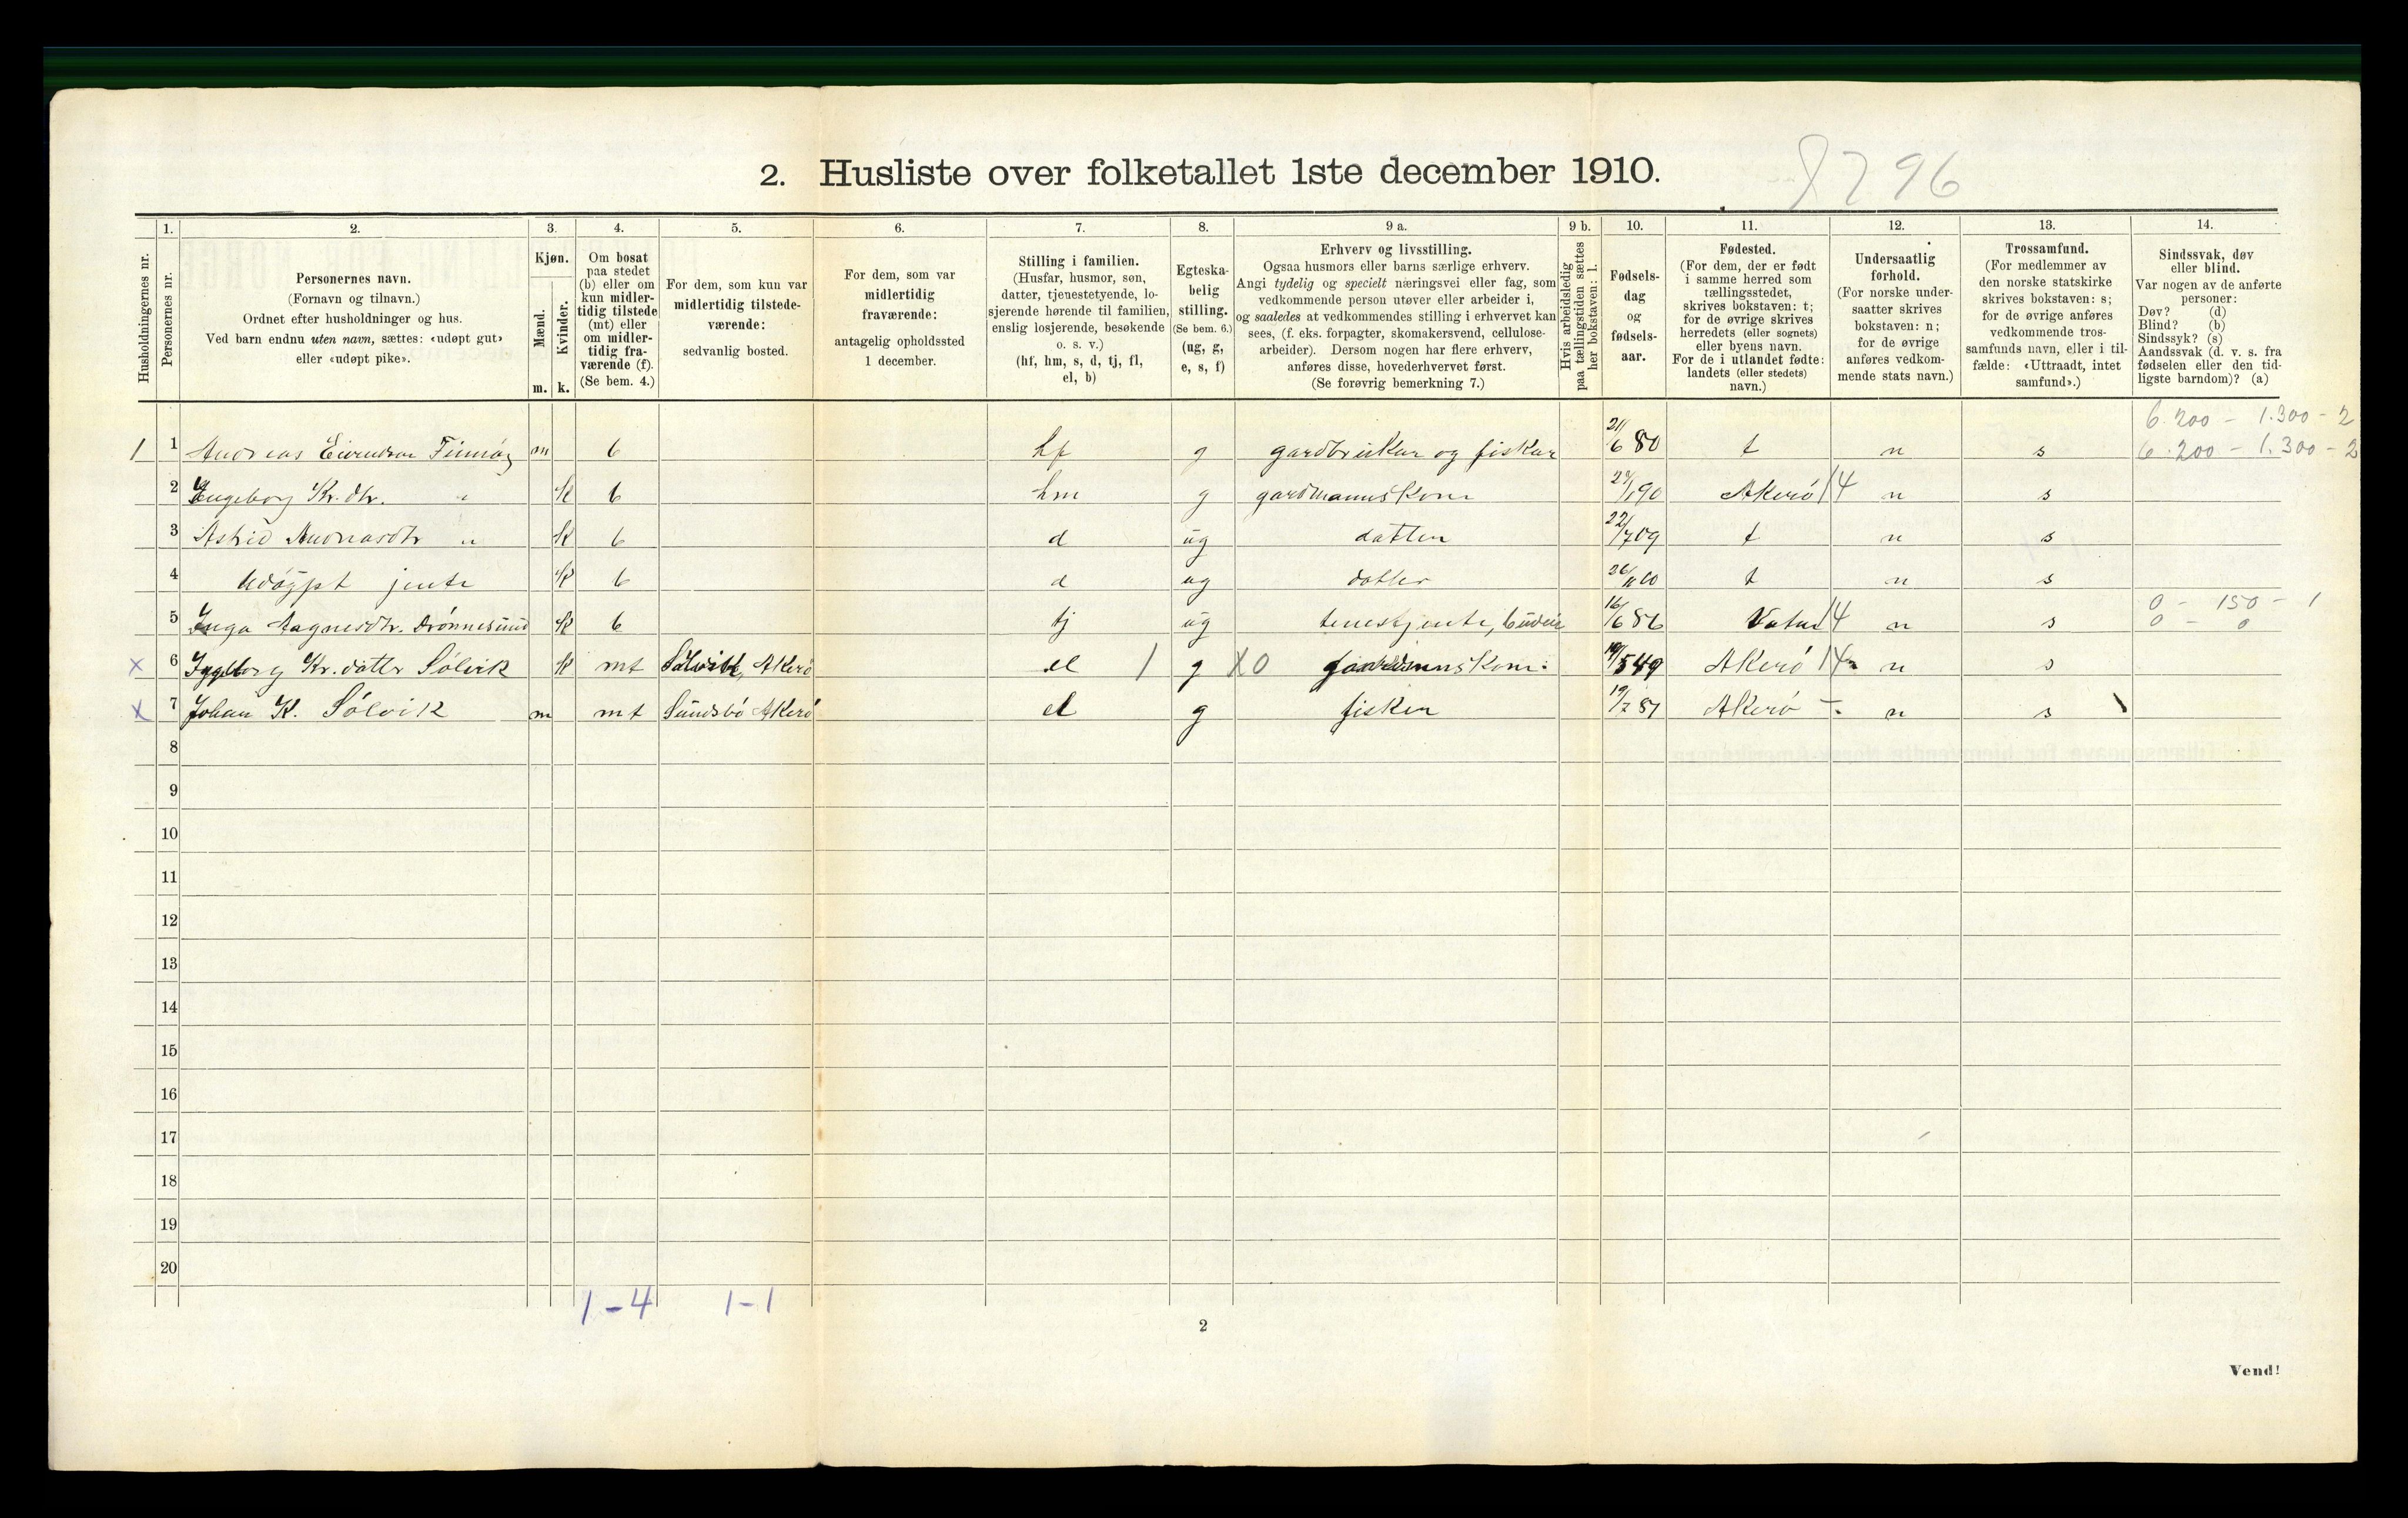 2. Husliste over folketallet 1ste december 1910.
8296
Husholdningernes nr.
1.
Personernes nr.
2.
Personernes navn.
(Fornavn og tilnavn.)
Ordnet efter husholdninger og hus.
Ved barn endnu uten navn, sættes: «udøpt gut»
eller «udøpt pike».
3.
Kjøn.
Mænd.
m.
Kvinder.
k.
4.
Om bosat
paa stedet
(b) eller om
kun midler-
tidig tilstede
(mt) eller
om midler-
tidig fra-
værende (f).
(Se bem. 4.)
5.
For dem, som kun var
midlertidig tilstede-
værende:
sedvanlig bosted.
6.
For dem, som var
midlertidig
fraværende:
antagelig opholdssted
1 december.
7.
Stilling i familien.
(Husfar, husmor, søn,
datter, tjenestetyende, lo-
sjerende hørende til familien,
enslig losjerende, besøkende
o. s. v.)
(hf, hm, s, d, tj, fl,
el, b)
8.
Egteska-
belig
stilling.
(Se bem. 6.)
(ug, g,
e, s, f)
9 a.
Erhverv og livsstilling.
Ogsaa husmors eller barns særlige erhverv.
Angi tydelig og specielt næringsvei eller fag, som
vedkommende person utøver eller arbeider i,
og saaledes at vedkommendes stilling i erhvervet kan
sees, (f. eks. forpagter, skomakersvend, cellulose-
arbeider). Dersom nogen har flere erhverv,
anføres disse, hovederhvervet først.
(Se forøvrig bemerkning 7.)
9 b.
Hvis arbeidsledig
paa tællingstiden sættes
her bokstaven: l.
10.
Fødsels-
dag
og
fødsels-
aar.
11.
Fødested.
(For dem, der er født
i samme herred som
tællingsstedet,
skrives bokstaven: t;
for de øvrige skrives
herredets (eller sognets)
eller byens navn.
For de i utlandet fødte:
landets (eller stedets)
navn.)
12.
Undersaatlig
forhold.
(For norske under-
saatter skrives
bokstaven: n;
for de øvrige
anføres vedkom-
mende stats navn.)
13.
Trossamfund.
(For medlemmer av
den norske statskirke
skrives bokstaven: s;
for de øvrige anføres
vedkommende tros-
samfunds navn, eller i til-
fælde: «Uttraadt, intet
samfund».)
14.
Sindssvak, døv
eller blind.
Var nogen av de anførte
personer:
Døv? (d)
Blind? (b)
Sindssyk? (s)
Aandssvak (d. v. s. fra
fødselen eller den tid-
ligste barndom)? (a)
6.200 - 1.300 - 2
1 1 Andreas Eivendson Finnøy m b hf g gardbrukar og fiskar 21/6 80 t n s 6.200 - 1.300 - 2
2 Engeborg Kr.dtr. " k b hm g gardmannskone 27/1 90 Akerø 14 n s
3 Astrid Andreasdtr " k b d ug datter 22/7 09 t n s
4 Udøypt jente k b d ug datter 26/11 10 t n s
0 - 150 - 1
5 Inga Magnesdtr. Drønnesund k b tj ug tenestjente, budeie 16/6 86 Vatne 14 n s 0 - 0
x 6 Ingeborg Kr.dattr Sølvik k mt Sølvik, Akerø el 1 g X0 gardmannskone 19/5 49 Akerø 14 n s
x 7 Johan K. Sølvik m mt Sundsbø Akerø el g fisker 19/7 81 Akerø -. n s
8
9
10
11
12
13
14
15
16
17
18
19
20
1-4 1-1
2
Vend!